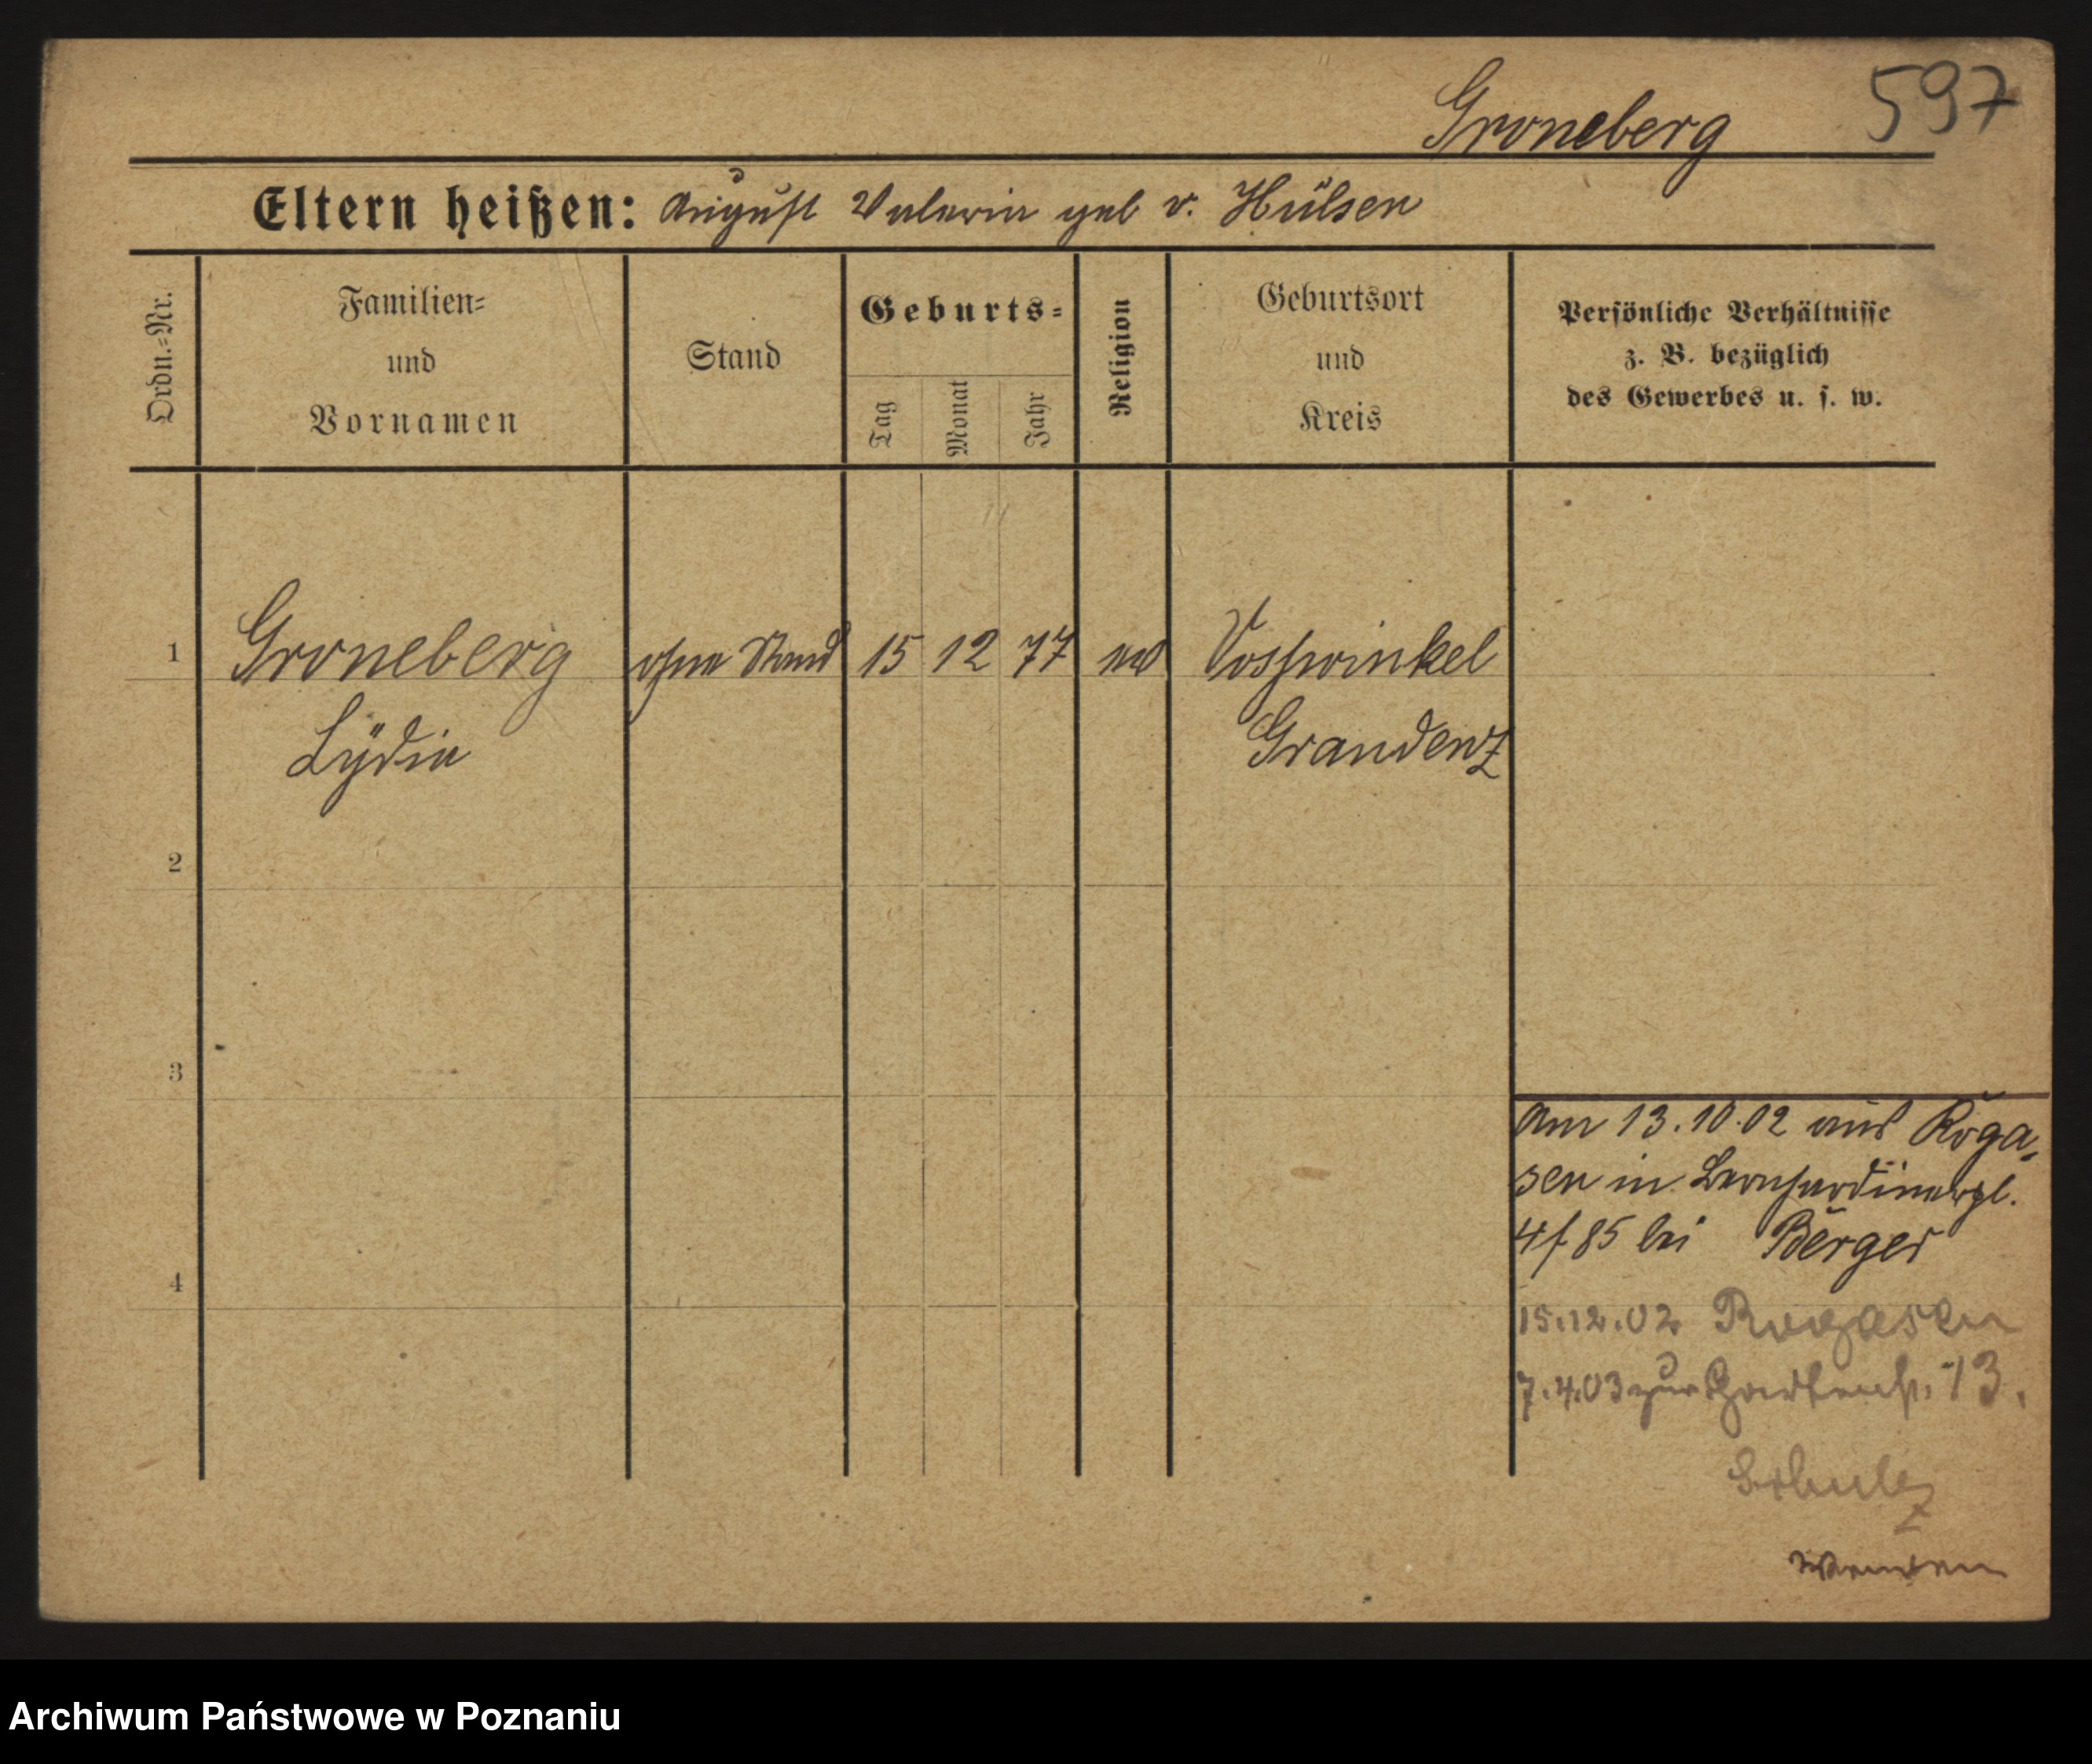 597
Groneberg
Eltern heißen: August Valeria geb v. Hülsen
Ordn.=Nr.
Familien=
und
Vornamen
Stand
Geburts=
Tag
Monat
Jahr
Religion
Geburtsort
und
Kreis
Persönliche Verhältnisse
z. B. bezüglich
des Gewerbes u. s. w.
1 Groneberg ohne Stand 15 12 77 Vosswinkel
Lÿdia Graudenz
2
3
4
Am 13.10.02 aus Roga-
sen in Bernhardinerpl.
4/ 85 bei Berger
15.12.02 Rogasen
7.4.03 zur Gartenstr. 13.
Schulz
Wenden
Archiwum Państwowe w Poznaniu